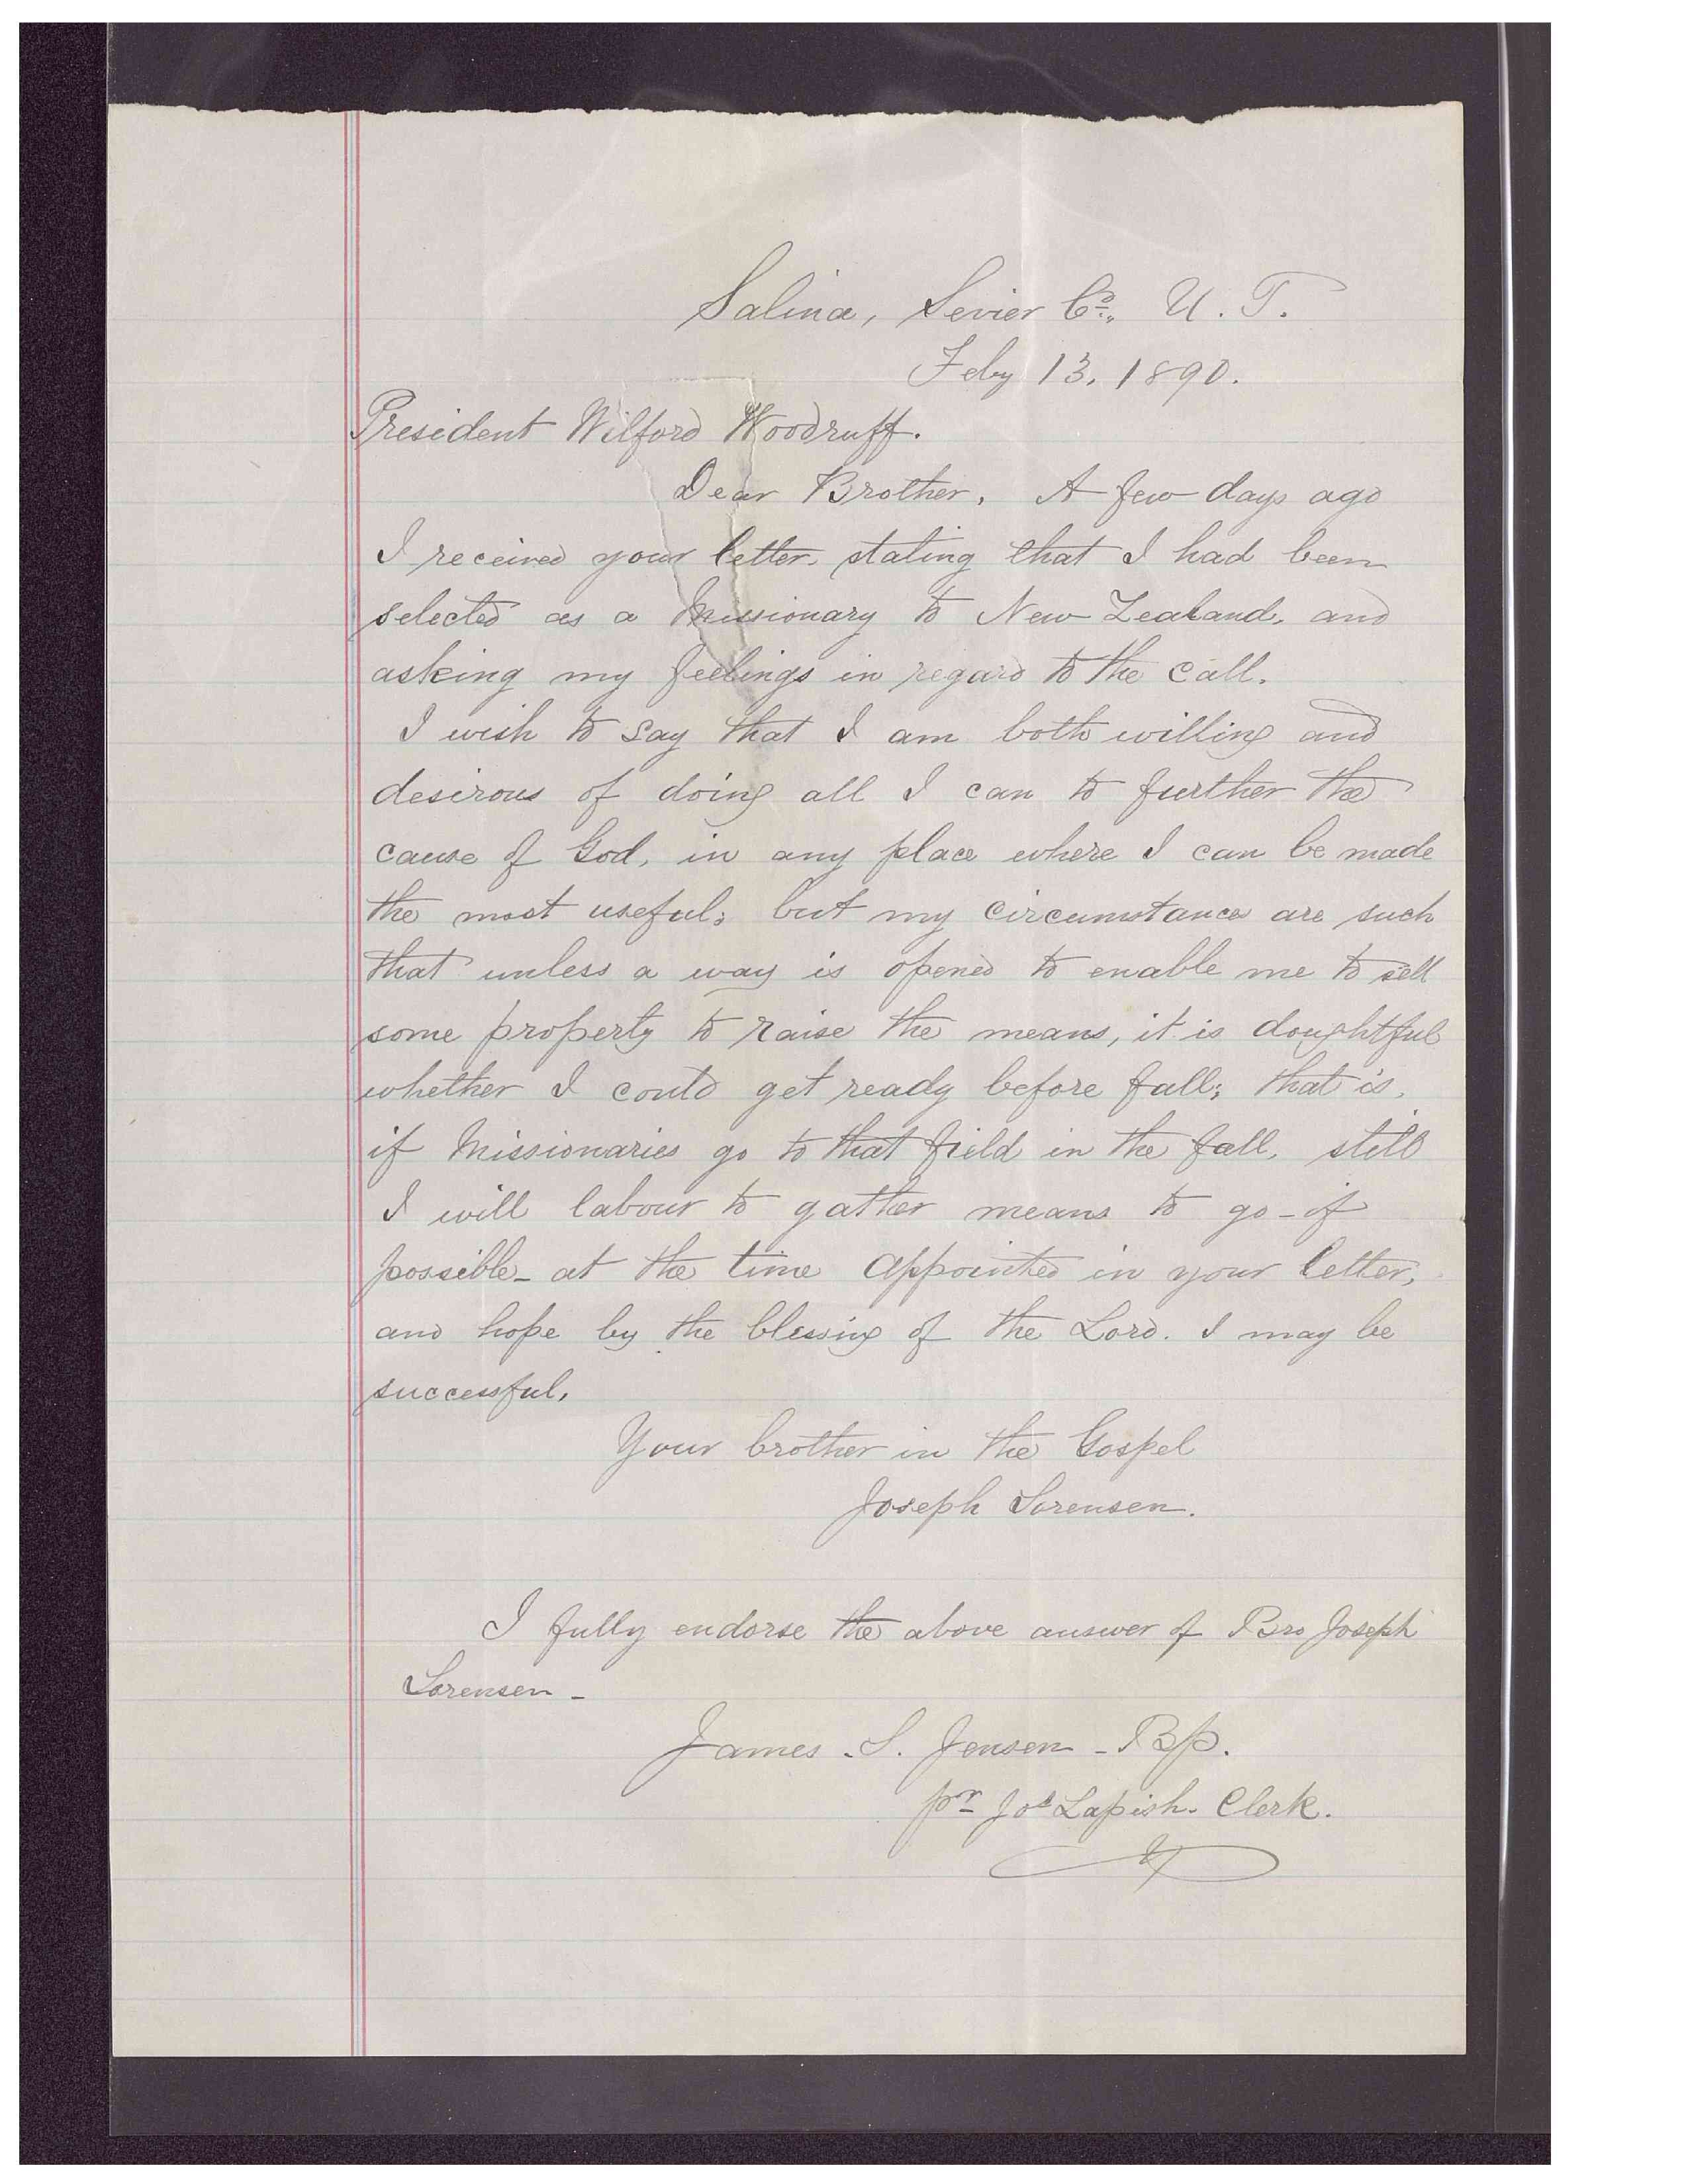 Salina, Sevier Co., U. T.
Feby 13, 1890.
President Wilford Woodruff.
Dear Brother, A few days ago
I received your letter, stating that I had been
selected as a Missionary to New Zealand, and
asking my feelings in regard to the call.
I wish to say that I am both willing and
desirous of doing all I can to further the
cause of God, in any place where I can be made
the most useful; but my circumstances are such
that unless a way is opened to enable me to sell
some property to raise the means, it is doughtful
whether I could get ready before fall; that is,
if Missionaries go to that field in the fall, still
I will labour to gather means to go - if
possible - at the time appointed in your letter,
and hope by the blessing of the Lord. I may be
successful.
Your brother in the Gospel
Joseph Sorensen.
I fully endorse the above answer of Bro Joseph
Sorensen -
James. S. Jensen - Bp.
pr Jos Lapish. Clerk.